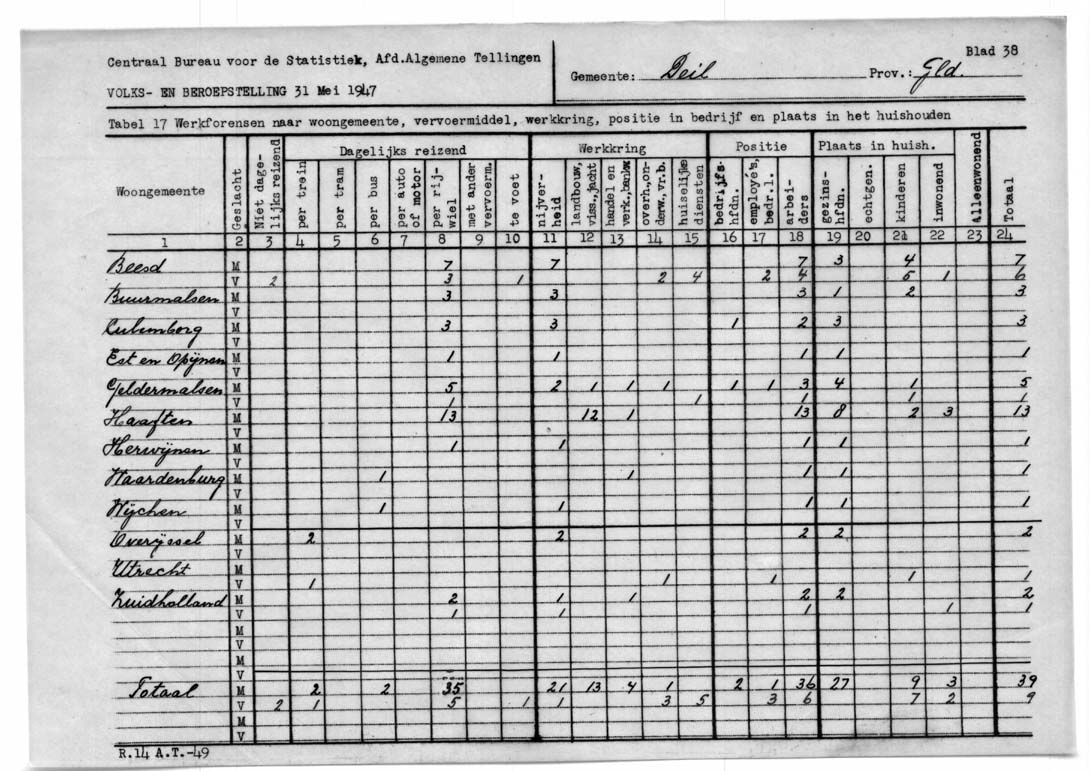 Centraal Bureau voor de Statistiek, Afd.Algemene Tellingen
VOLKS- EN BEROEPSTELLING 31 Mei 1947
Gemeente: Deil Prov.: Gld.
Blad 38
Tabel 17 Werkforensen naar woongemeente, vervoermiddel, werkkring, positie in bedrijf en plaats in het huishouden
Woongemeente Geslacht Niet dagelijks reizend Dagelijks reizend Werkkring Positie Plaats in huish. Alleenwonend Totaal
per trein per tram per bus per auto of motor per rij-wiel met ander vervoerm. te voet nijver-heid landbouw, viss.,jacht handel en verk.,bankw. overh.,on-derw.,vr.b. huiselijke diensten bedrijfs-hfdn. employé's, bedr.l. arbei-ders gezins-hfdn. echtgen. kinderen inwonend
1 2 3 4 5 6 7 8 9 10 11 12 13 14 15 16 17 18 19 20 21 22 23 24
Beesd M 7 7 7 3 4 7
V 2 3 1 2 4 2 4 5 1 6
Buurmalsen M 3 3 3 1 2 3
V
Culemborg M 3 3 1 2 3 3
V
Est en Opijnen M 1 1 1 1 1
V
Geldermalsen M 5 2 1 1 1 1 1 3 4 1 5
V 1 1 1 1 1
Haaften M 13 12 1 13 8 2 3 13
V
Herwijnen M 1 1 1 1 1
V
Waardenburg M 1 1 1 1 1
V
Wijchen M 1 1 1 1 1
V
Overijssel M 2 2 2 2 2
V
Utrecht M
V 1 1 1 1 1
Zuidholland M 2 1 1 2 2 2
V 1 1 1 1 1
M
V
M
V
Totaal M 2 2 35 21 13 4 1 2 1 36 27 9 3 39
V 2 1 5 1 1 3 5 3 6 7 2 9
M
V
R.14 A.T.-49